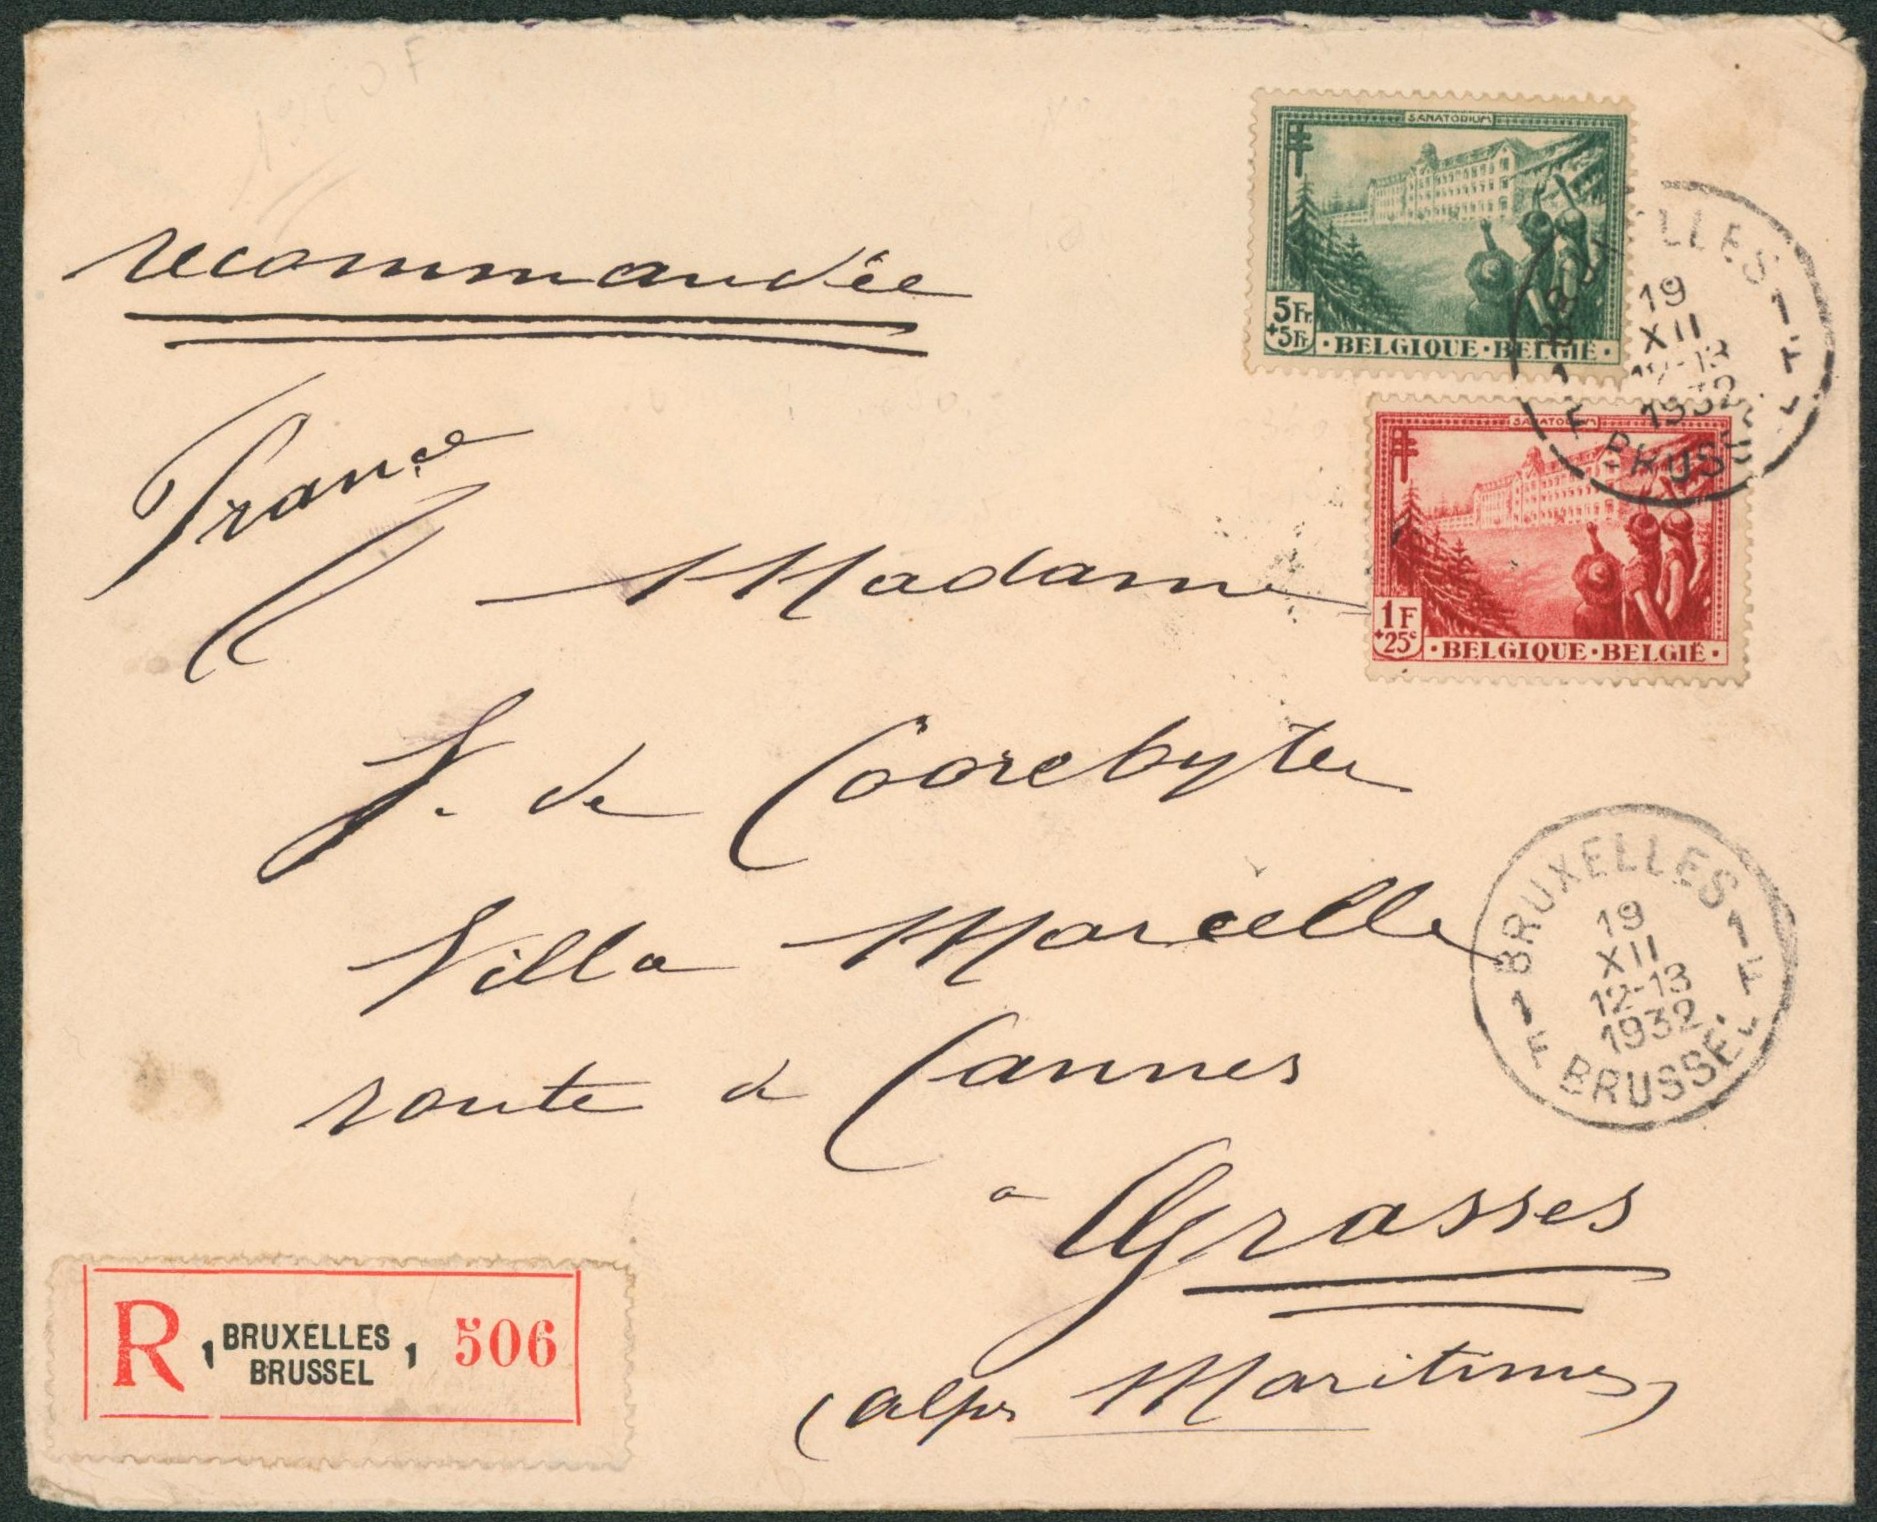 recommandée
SANATORIUM
5Fr.
+5Fr
·BELGIQUE·BELGIË·
BRUXELLES 1
19
XII
12-13
1932
1 F BRUSSEL F
France
SANATORIUM
1F
+25c
·BELGIQUE·BELGIË·
Madame
J. de Coorebyter
Villa Marcelle
route de Cannes
à Grasses
(alpes Maritimes)
BRUXELLES 1
19
XII
12-13
1932
1 F BRUSSEL F
R 1 BRUXELLES 1 506
BRUSSEL